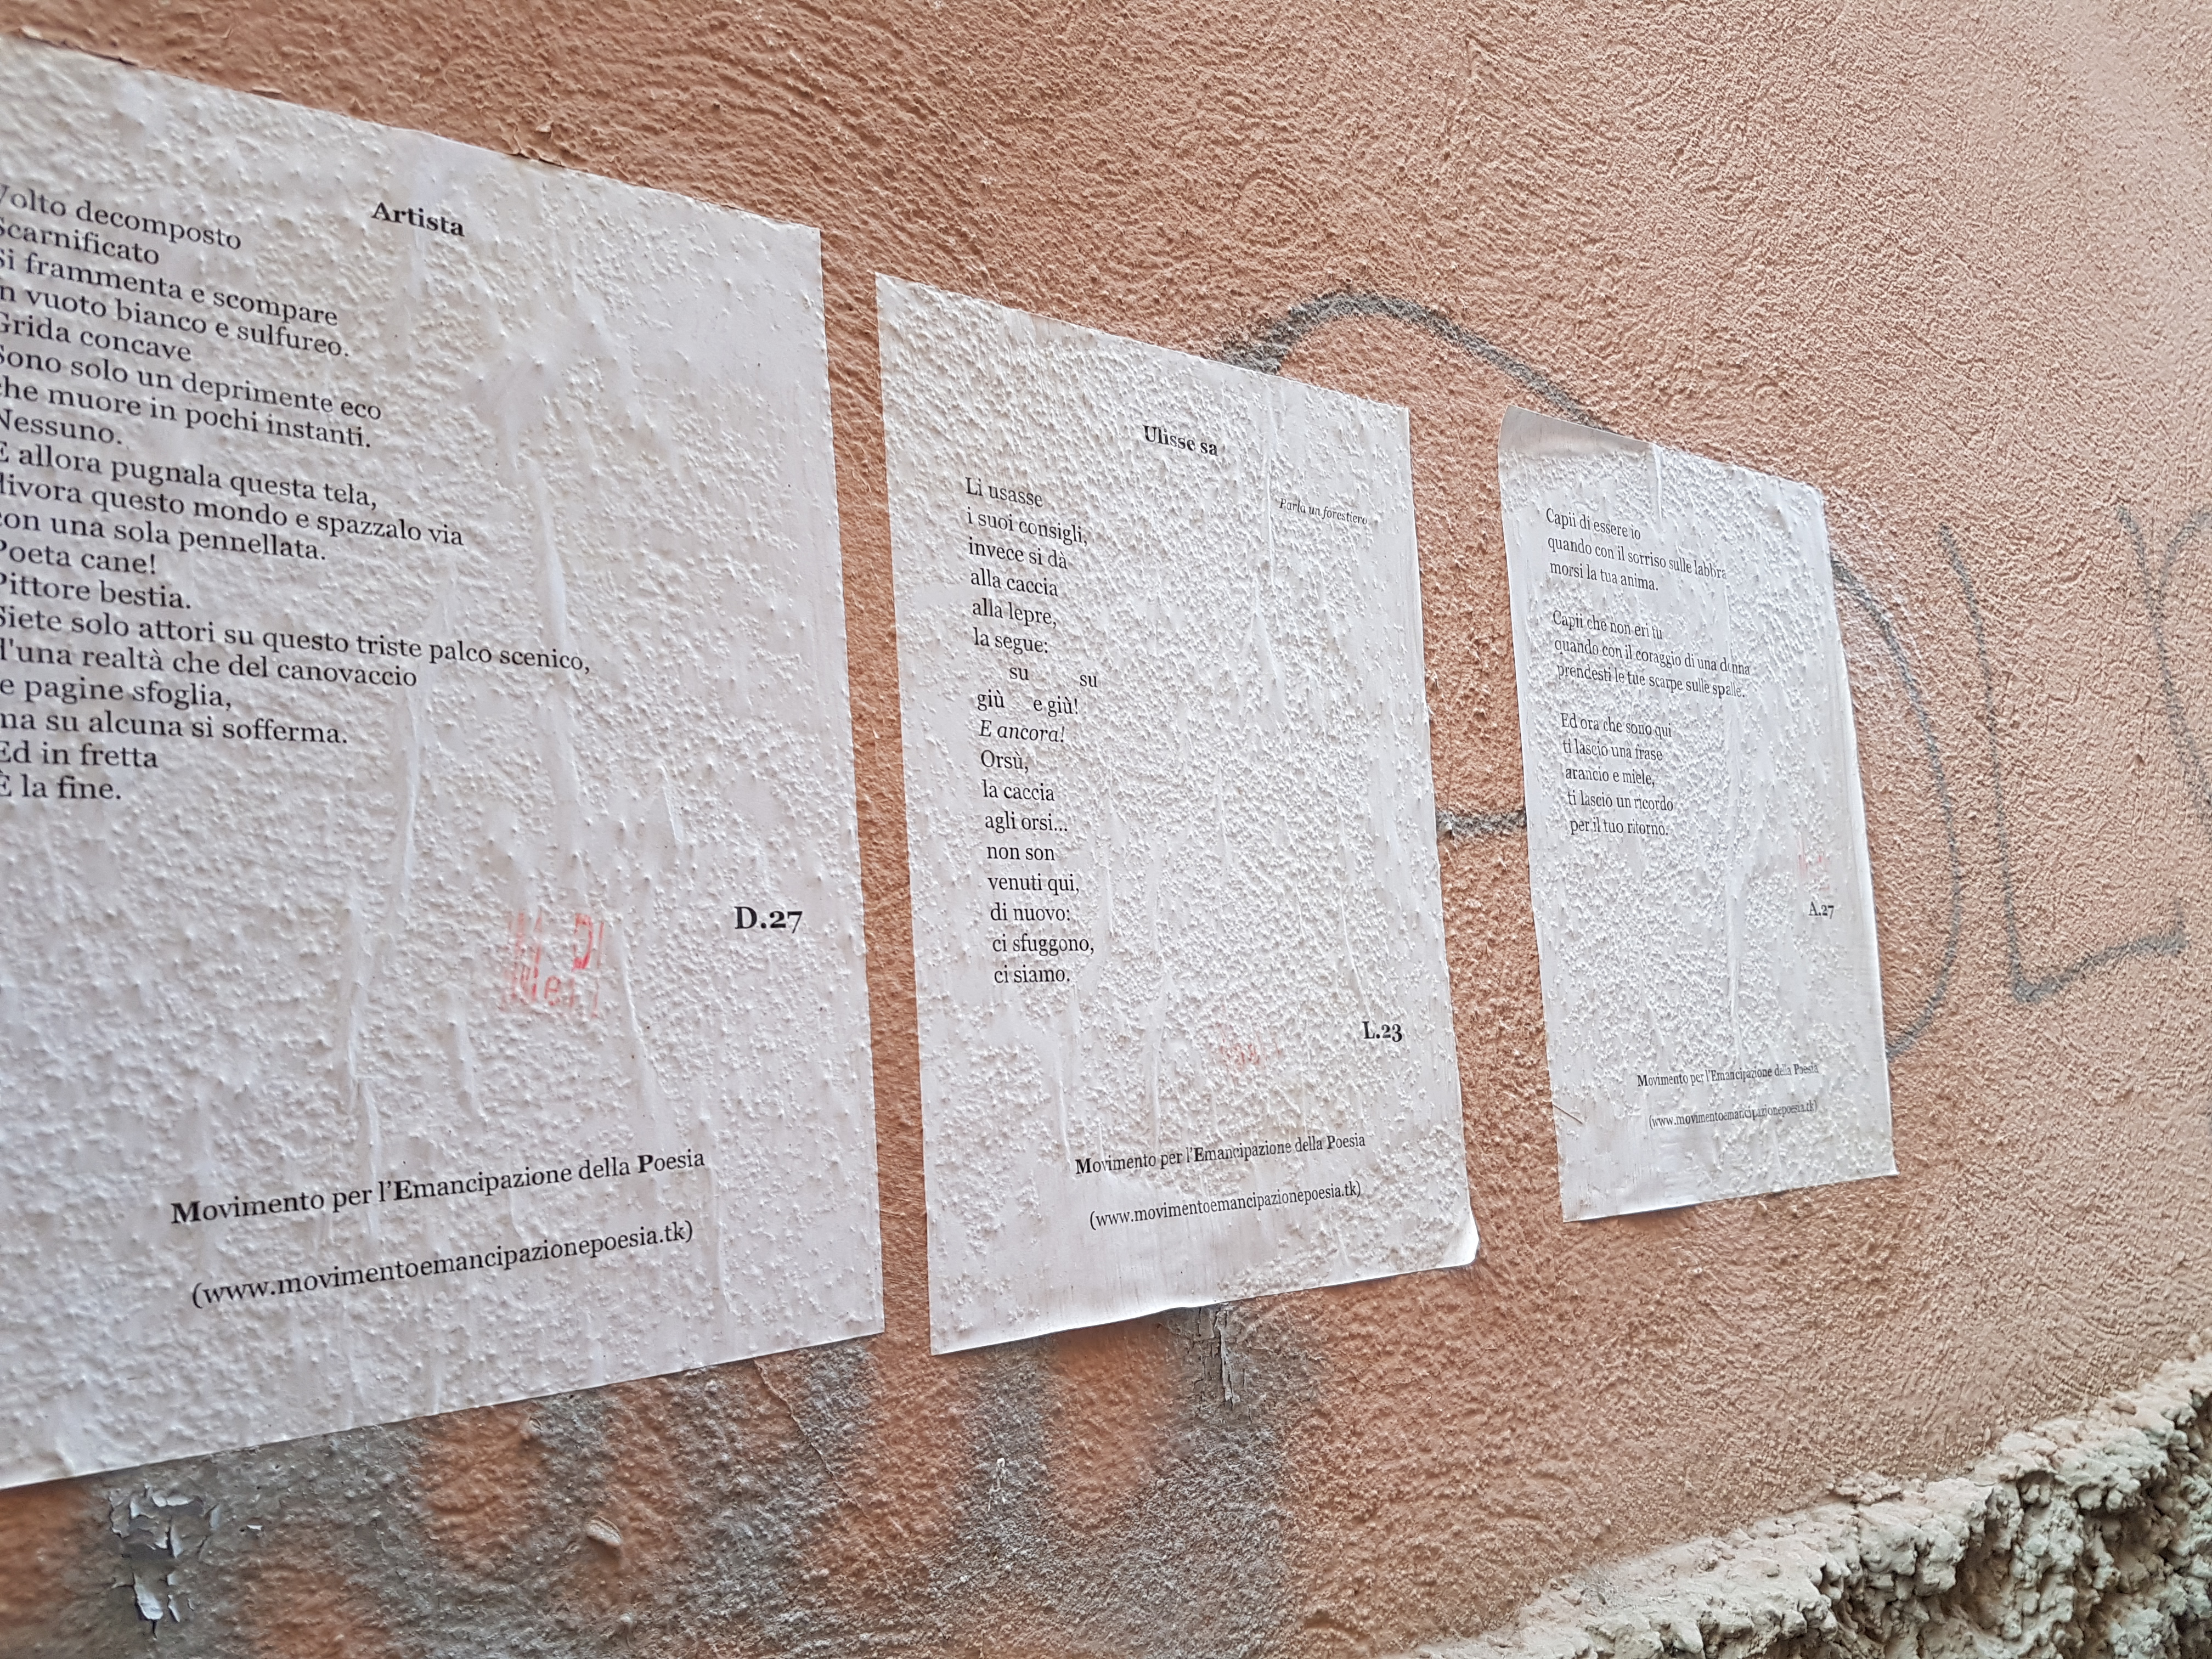 Artista
Volto decomposto
Scarnificato
Si frammenta e scompare
in vuoto bianco e sulfureo.
Grida concave
Sono solo un deprimente eco
che muore in pochi instanti.
Nessuno.
E allora pugnala questa tela,
divora questo mondo e spazzalo via
con una sola pennellata.
Poeta cane!
Pittore bestia.
Siete solo attori su questo triste palco scenico,
d'una realtà che del canovaccio
le pagine sfoglia,
ma su alcuna si sofferma.
Ed in fretta
È la fine.
D.27
Movimento per l'Emancipazione della Poesia
(www.movimentoemancipazionepoesia.tk)
Ulisse sa
Parla un forestiero
Li usasse
i suoi consigli,
invece si dà
alla caccia
alla lepre,
la segue:
su su
giù e giù!
E ancora!
Orsù,
la caccia
agli orsi...
non son
venuti qui,
di nuovo:
ci sfuggono,
ci siamo.
L.23
Movimento per l'Emancipazione della Poesia
(www.movimentoemancipazionepoesia.tk)
Capii di essere io
quando con il sorriso sulle labbra
morsi la tua anima.
Capii che non eri tu
quando con il coraggio di una donna
prendesti le tue scarpe sulle spalle.
Ed ora che sono qui
ti lascio una frase
arancio e miele,
ti lascio un ricordo
per il tuo ritorno.
A.27
Movimento per l'Emancipazione della Poesia
(www.movimentoemancipazionepoesia.tk)